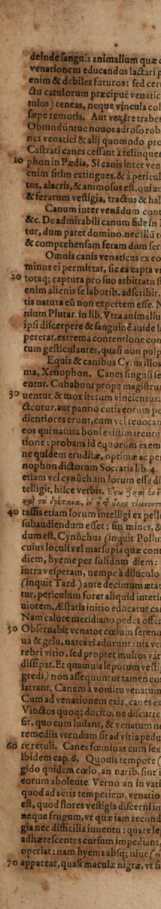 deinde sanguis animalium quæ c
venationem educandus lactari p
enim & debiles futuros: sed cer
ctu catulorum præcipuè venatic
tulos) teneas, neque vincula col
sæpe remotis. Aut vagàre traber
Obtunduntur nouos adroso rob
nes venatici & alij quomodo pro
Castrati canes essent à relinquen
10 phon in Pædis. Si canis inter ven
enim sit hs extingues, & à pericul
tor, alacris, & animosus est, quàm
& ferarum vestigia, tractus & hal
Canum inter venandum com
&c. De admirabili canum fide in
tor, dum paret domino nec illa n
& comprehensam feram dum ser
Omnis canis venaticus ex eo
minus ei permittat, sic ea capta vi
20 totaq; captura pro suo arbitratu fi
enim alienis se laboribus adscribit,
tia natura eū non expertem esse. P
nium Plutar. in lib. Vtra animaliu
ipsi discerpere & sanguinē auidè l
peretat, extrema contentione con
cum gesticulantes, quasi non pulp
Equis & canibus Cy. mille &
ma, Xenophon. Canes singuli se
entur. Cubabant prope magistru
30 uentut & mox ictum vincientur,
ctcotur, aut panno cutis eorum p
dientiores erunt, cum vel reuocan
eos quinatura boni existimarentur
tione: probans id equorum exem
ne quidem eruditæ, optimæ ac per
nophon dictorum Socratis lib. 4.
etiam vel cynûcham lorum esse di
telligit, hisce verbis,
40 tassis etiam lorum intelligi ex pelli
subaudiendum esset: sin mines, &
dum est. Cynûchus (inquit Pollux
cuius locus vel marsupia quæ cont
diem, hyeme per solidum diem:
intra vesperam, nempe à diluculo
(inquit Tard.) ante decimum æta
tur, periculum foret aliquid interti
uiorem. Æstatis initio educatur ca
Nam calore meridiano pedes officit
50 Obseruabit venator cœlum serenum
ua & gelu, nares ei aduruntur: nix ve
rebri vitio, sed propter multos væ
dissipat. Et quamuis leporum vesti
gredi, non assequuntur tamen cum
latrant. Canem à vomitu venatum
Cum ad venationem exis, canes ex
Vinctos quoq; ducito, ne discurra
sit, quo cum insiluit, & venatum n
remediis vtendum sit ad vitia pedu
60 reretuli. Canes formosus cum sec
Ibidem cap. 6. Quouis tempore (
gido quidem cœlo, an narib. sint i
eorum absolente. Verno an in vati
quod ad aëris temperiem, venatio
est, quod flores vestigia discerni in
neque frugum, vt quæ iam secund
gia nec difficilia inuentu: quare le
adhærescentes cursum impediunt,
operiat: nam hyems absit, niue (
70 apparent, quasi maculæ nigræ, vt si